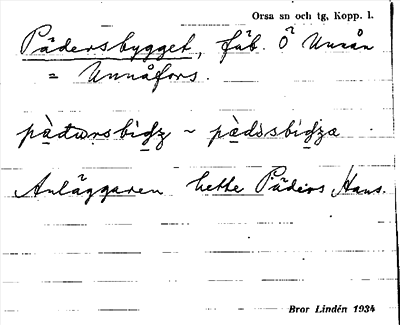 Orsa sn och tg, Kopp. l.
Pädersbygget, fäb. Ö Unnån
= Unnåfors.
pàdərsbiʤ ~ pàdəsbiʤa
Anläggaren hette Päders Hans.
Bror Lindén 1934